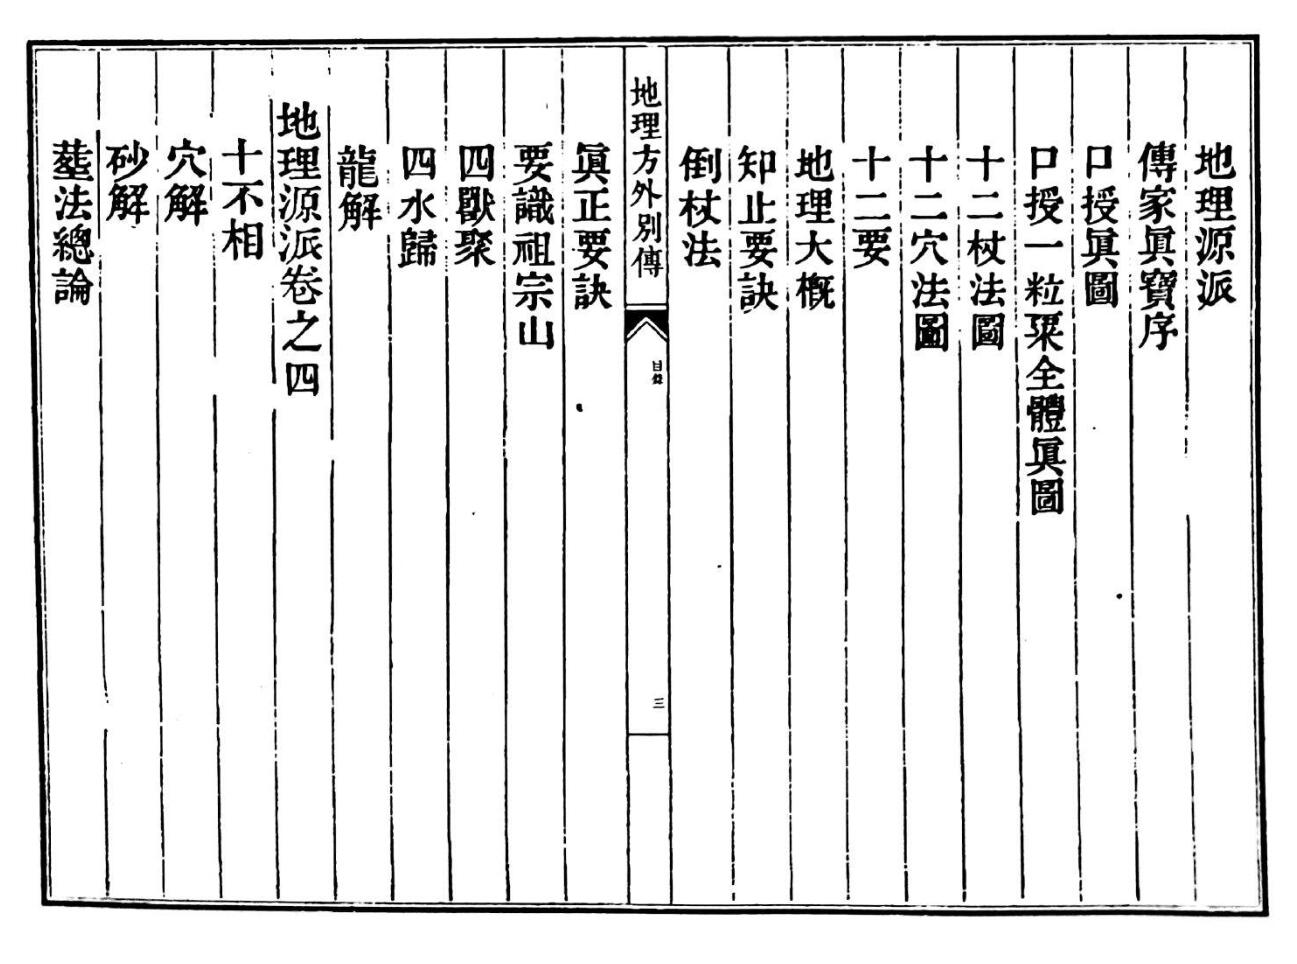 地理源派
傳家眞寶序
口授眞圖
口授一粒粟全體眞圖
十二杖法圖
十二穴法圖
十二要
地理大概
知止要訣
倒杖法
地理方外別傳
目錄
三
眞正要訣
要識祖宗山
四獸聚
四水歸
龍解
地理源派卷之四
十不相
穴解
砂解
塟法總論